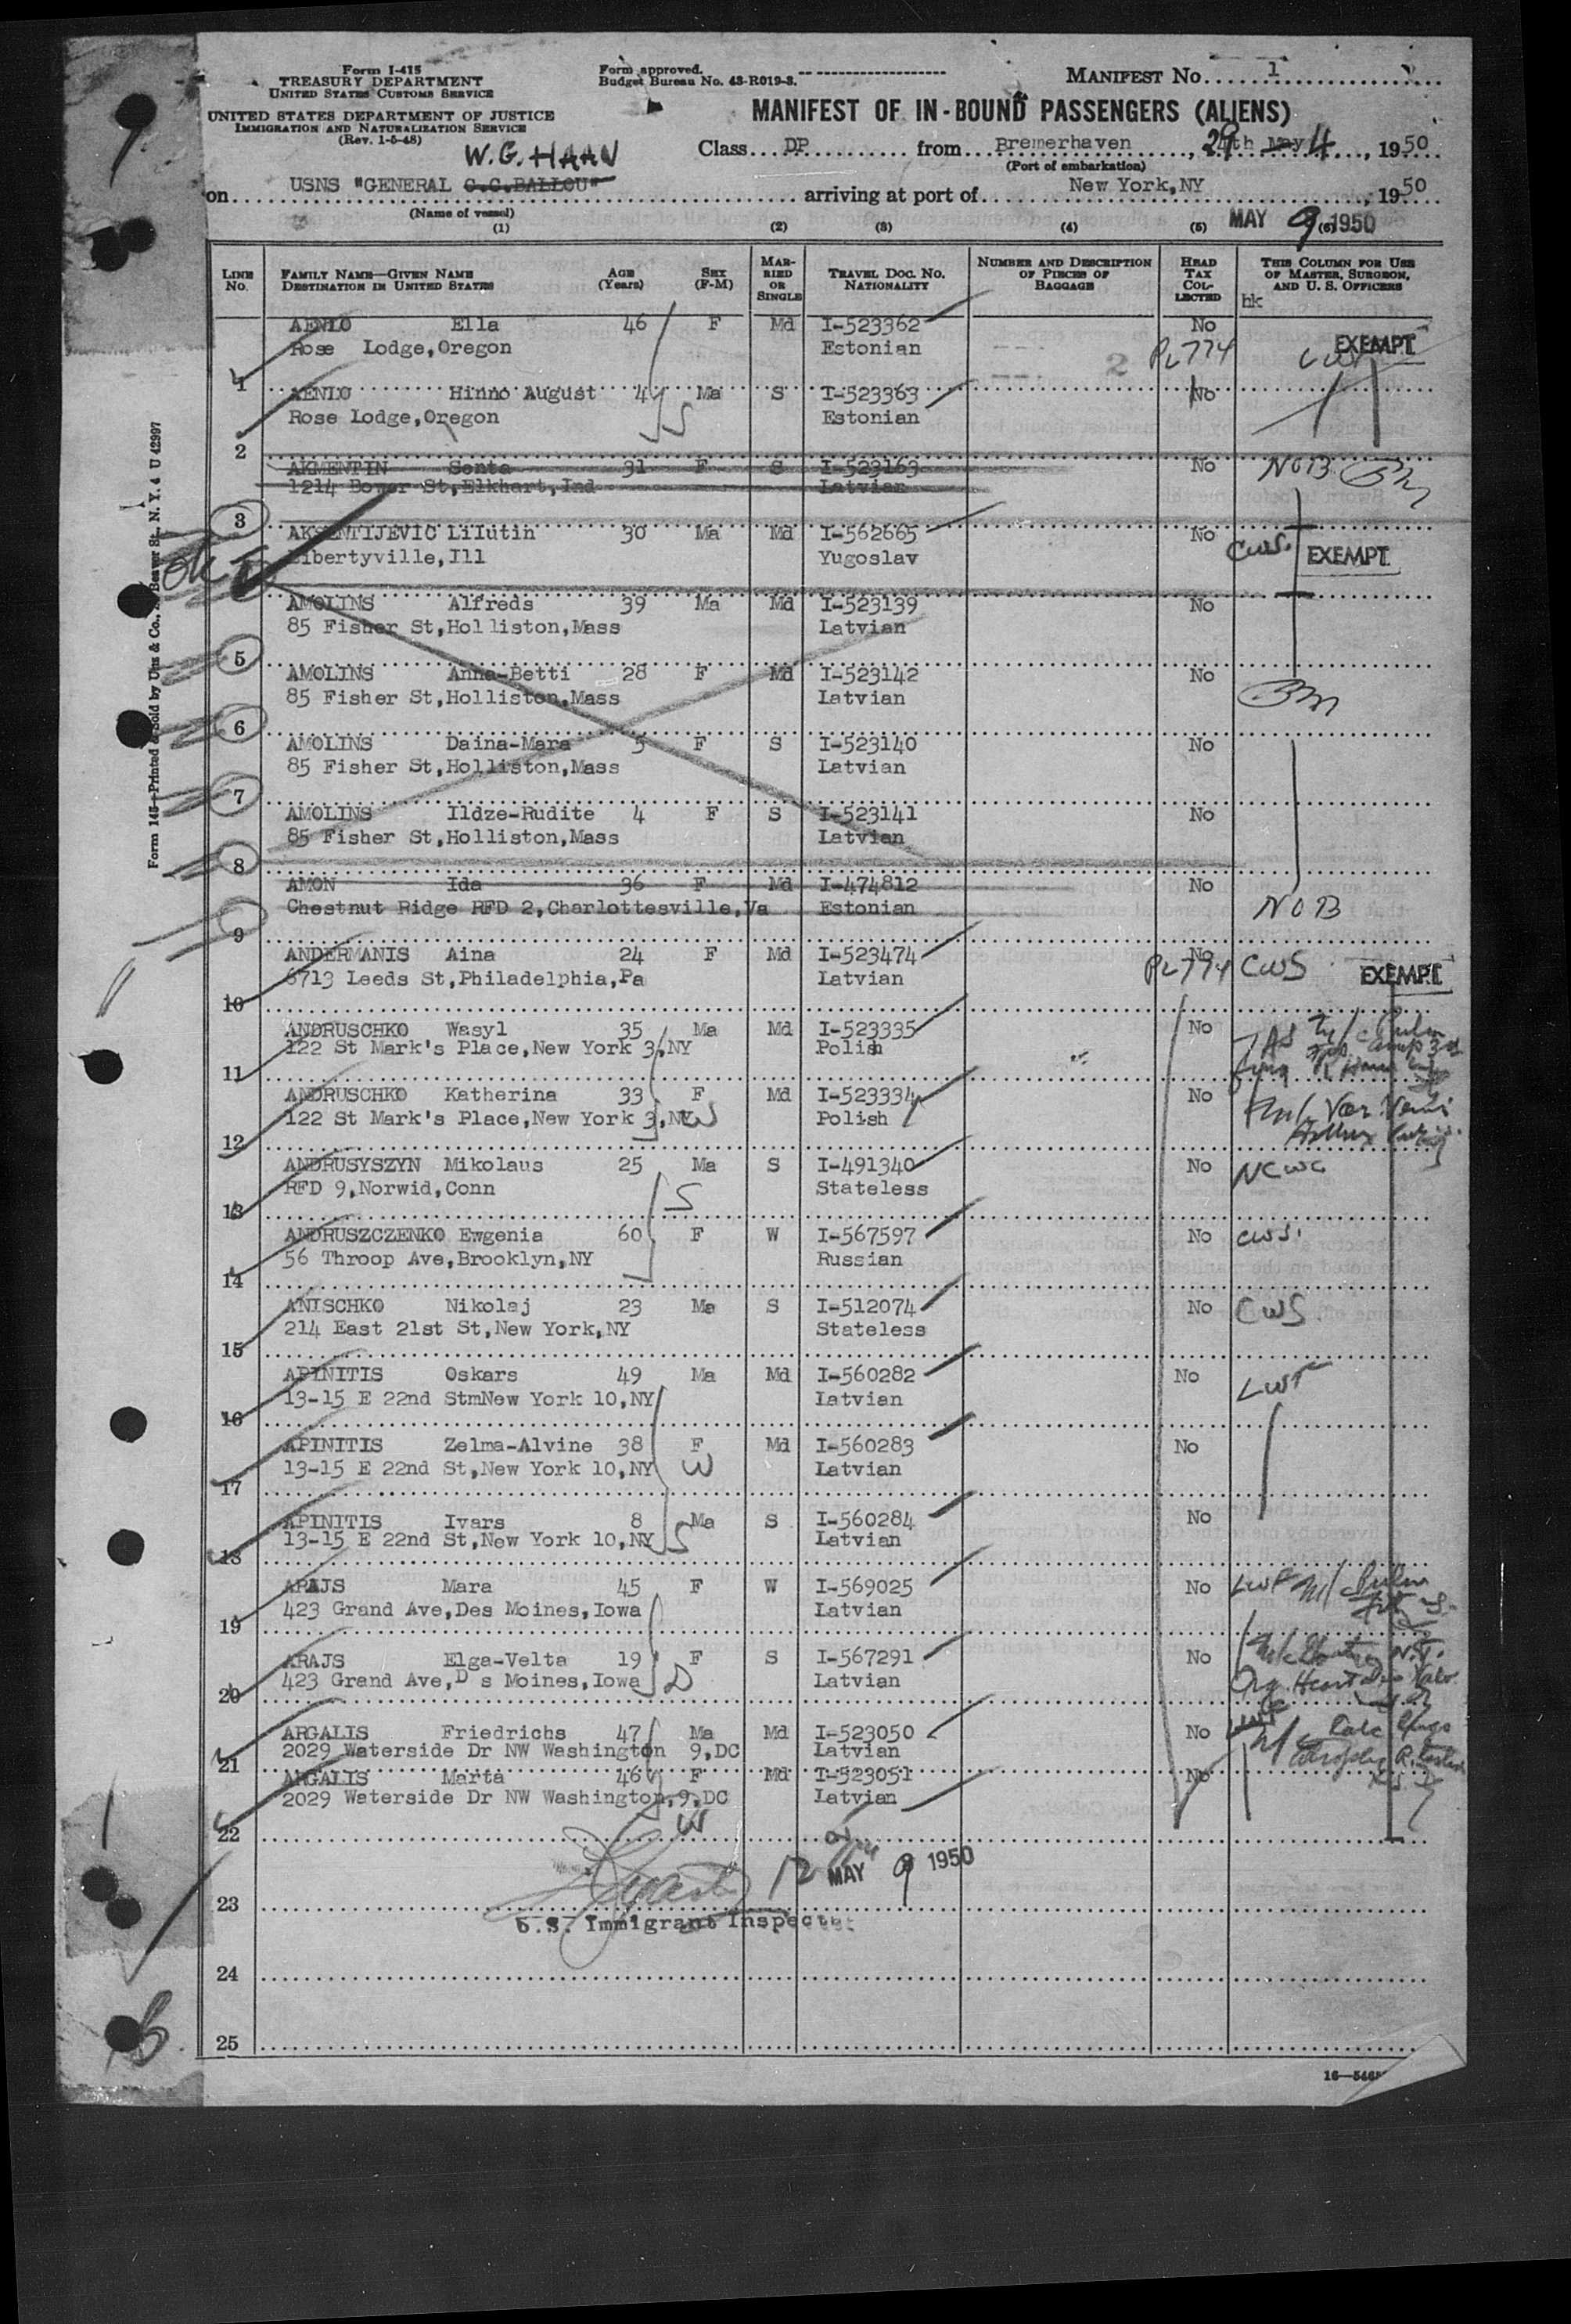 Form I-415
TREASURY DEPARTMENT
UNITED STATES CUSTOMS SERVICE
UNITED STATES DEPARTMENT OF JUSTICE
IMMIGRATION AND NATURALIZATION SERVICE
(Rev. 1-5-48)
Form approved.
Budget Bureau No. 43-R019-3.
MANIFEST No. 1
MANIFEST OF IN-BOUND PASSENGERS (ALIENS)
Class DP from Bremerhaven, 29th May 4, 1950
(Port of embarkation)
W.G. HAAN
on USNS "GENERAL C.C.BALLOU" arriving at port of New York,NY, 1950
(Name of vessel)
MAY 9 1950
(1) (2) (3) (4) (5) (6)
LINE No. FAMILY NAME—GIVEN NAME DESTINATION IN UNITED STATES AGE (Years) SEX (F-M) MARRIED OR SINGLE TRAVEL DOC. NO. NATIONALITY NUMBER AND DESCRIPTION OF PIECES OF BAGGAGE HEAD TAX COLLECTED THIS COLUMN FOR USE OF MASTER, SURGEON, AND U. S. OFFICERS
hk
AENLO Ella 46 F Md I-523362 No
Rose Lodge,Oregon Estonian 2 PL774 EXEMPT
1
AENLO Hinno August 4 Ma S I-523363 No
Rose Lodge,Oregon Estonian
2
AKMENTIN Senta 31 F S I-523163 No NOB
1214 Bower St,Elkhart,Ind Latvian
3
AKSENTIJEVIC Lilutin 30 Ma Md I-562665 No CWS.
Libertyville,Ill Yugoslav EXEMPT
AMOLINS Alfreds 39 Ma Md I-523139 No
85 Fisher St,Holliston,Mass Latvian
5
AMOLINS Anna-Betti 28 F Md I-523142 No
85 Fisher St,Holliston,Mass Latvian
6
AMOLINS Daina-Mara 5 F S I-523140 No
85 Fisher St,Holliston,Mass Latvian
7
AMOLINS Ildze-Rudite 4 F S I-523141 No
85 Fisher St,Holliston,Mass Latvian
8
AMON Ida 36 F Md I-474812 No
Chestnut Ridge RFD 2,Charlottesville,Va Estonian NOB
9
ANDERMANIS Aina 24 F Md I-523474 No CWS EXEMPT
6713 Leeds St,Philadelphia,Pa Latvian PL774
10
ANDRUSCHKO Wasyl 35 Ma Md I-523335 No
122 St Mark's Place,New York 3,NY Polish
11
ANDRUSCHKO Katherina 33 F Md I-523334 No
122 St Mark's Place,New York 3,NY W Polish
12
ANDRUSYSZYN Mikolaus 25 Ma S I-491340 No NCWC
RFD 9,Norwid,Conn S Stateless
13
ANDRUSZCZENKO Ewgenia 60 F W I-567597 No CWS.
56 Throop Ave,Brooklyn,NY Russian
14
ANISCHKO Nikolaj 23 Ma S I-512074 No CWS
214 East 21st St,New York,NY Stateless
15
APINITIS Oskars 49 Ma Md I-560282 No LWF
13-15 E 22nd StmNew York 10,NY Latvian
16
APINITIS Zelma-Alvine 38 F Md I-560283 No
13-15 E 22nd St,New York 10,NY W Latvian
17
APINITIS Ivars 8 Ma S I-560284 No
13-15 E 22nd St,New York 10,NY S Latvian
18
ARAJS Mara 45 F W I-569025 No LWF
423 Grand Ave,Des Moines,Iowa Latvian
19
ARAJS Elga-Velta 19 F S I-567291 No
423 Grand Ave,D s Moines,Iowa D Latvian
20
ARGALIS Friedrichs 47 Ma Md I-523050 No LWF
2029 Waterside Dr NW Washington 9,DC Latvian
21
ARGALIS Marta 46 F Md I-523051 No
2029 Waterside Dr NW Washington,9,DC Latvian
W
22
MAY 9 1950
23
U.S. Immigrant Inspector
24
25